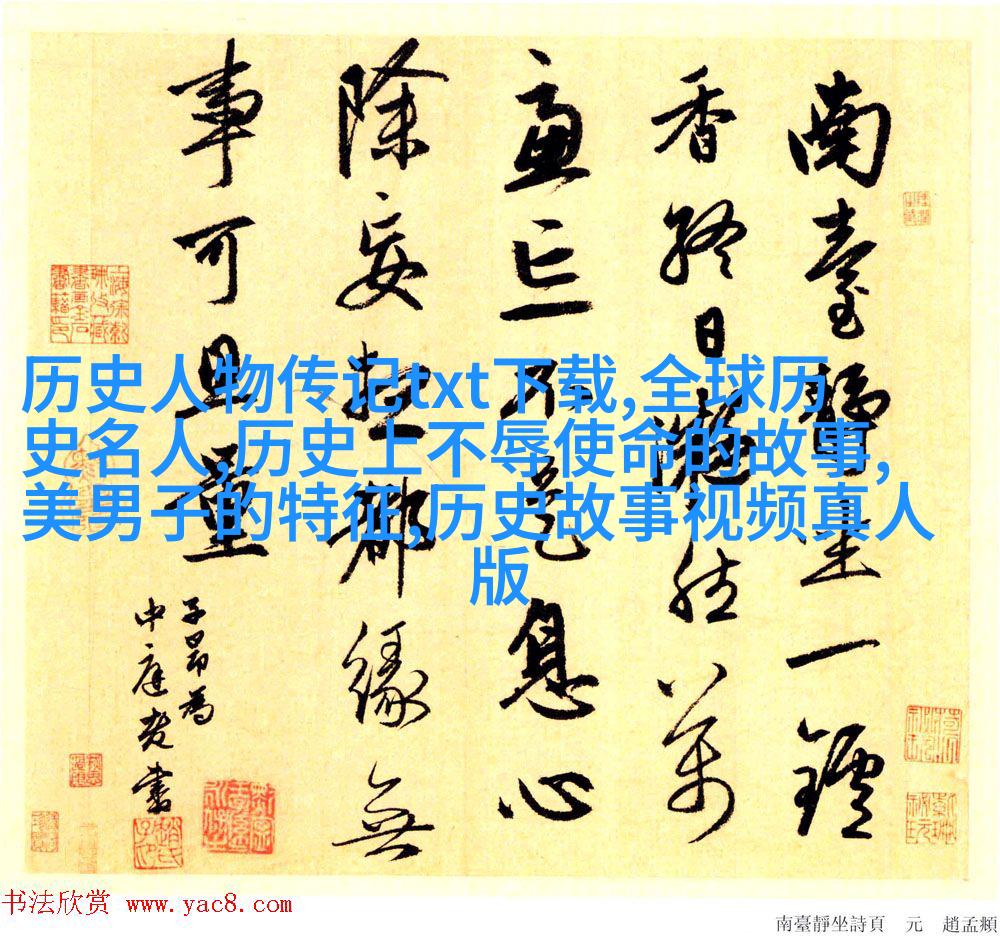 南臺靜坐一鑪
香終日凝然萬
慮亡不是息心
除妄想都緣無
事可思量
子昂為
中庭老書
历史人物传记txt下载,全球历
史名人,历史上不辱使命的故事,
美男子的特征,历史故事视频真人
版
书法欣赏 www.yac8.com
南臺靜坐詩頁 元 趙孟頫